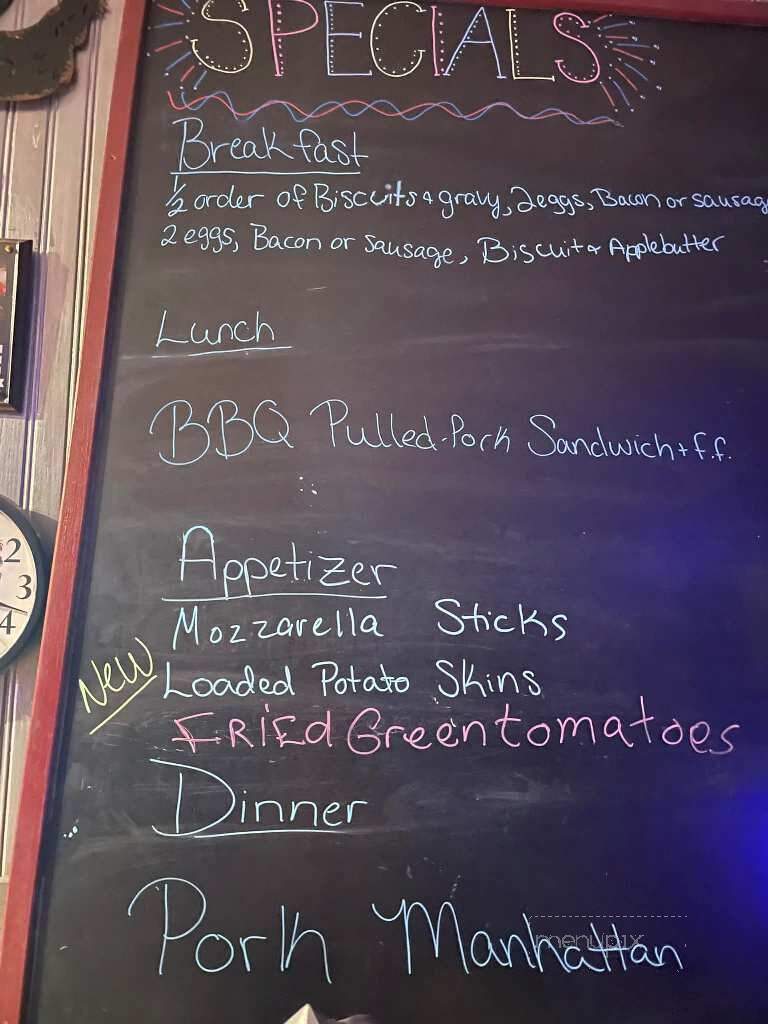 SPECIALS
Breakfast
½ order of Biscuits & gravy, 2eggs, Bacon or sausage
2 eggs, Bacon or Sausage, Biscuit & Applebutter
Lunch
BBQ Pulled-Pork Sandwich + f.f.
Appetizer
Mozzarella Sticks
New Loaded Potato Skins
FRIEd Green tomatoes
Dinner
Pork Manhattan
menupix
2
3
4